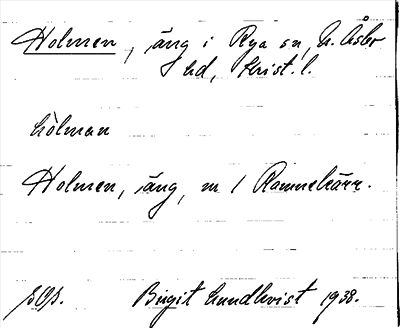 Holmen, äng i Rya sn, N. Åsbo
hd, Krist. l.
hòlman
Holmen, äng, m 1 Rammekärr.
Birgit Lundkvist 1938.